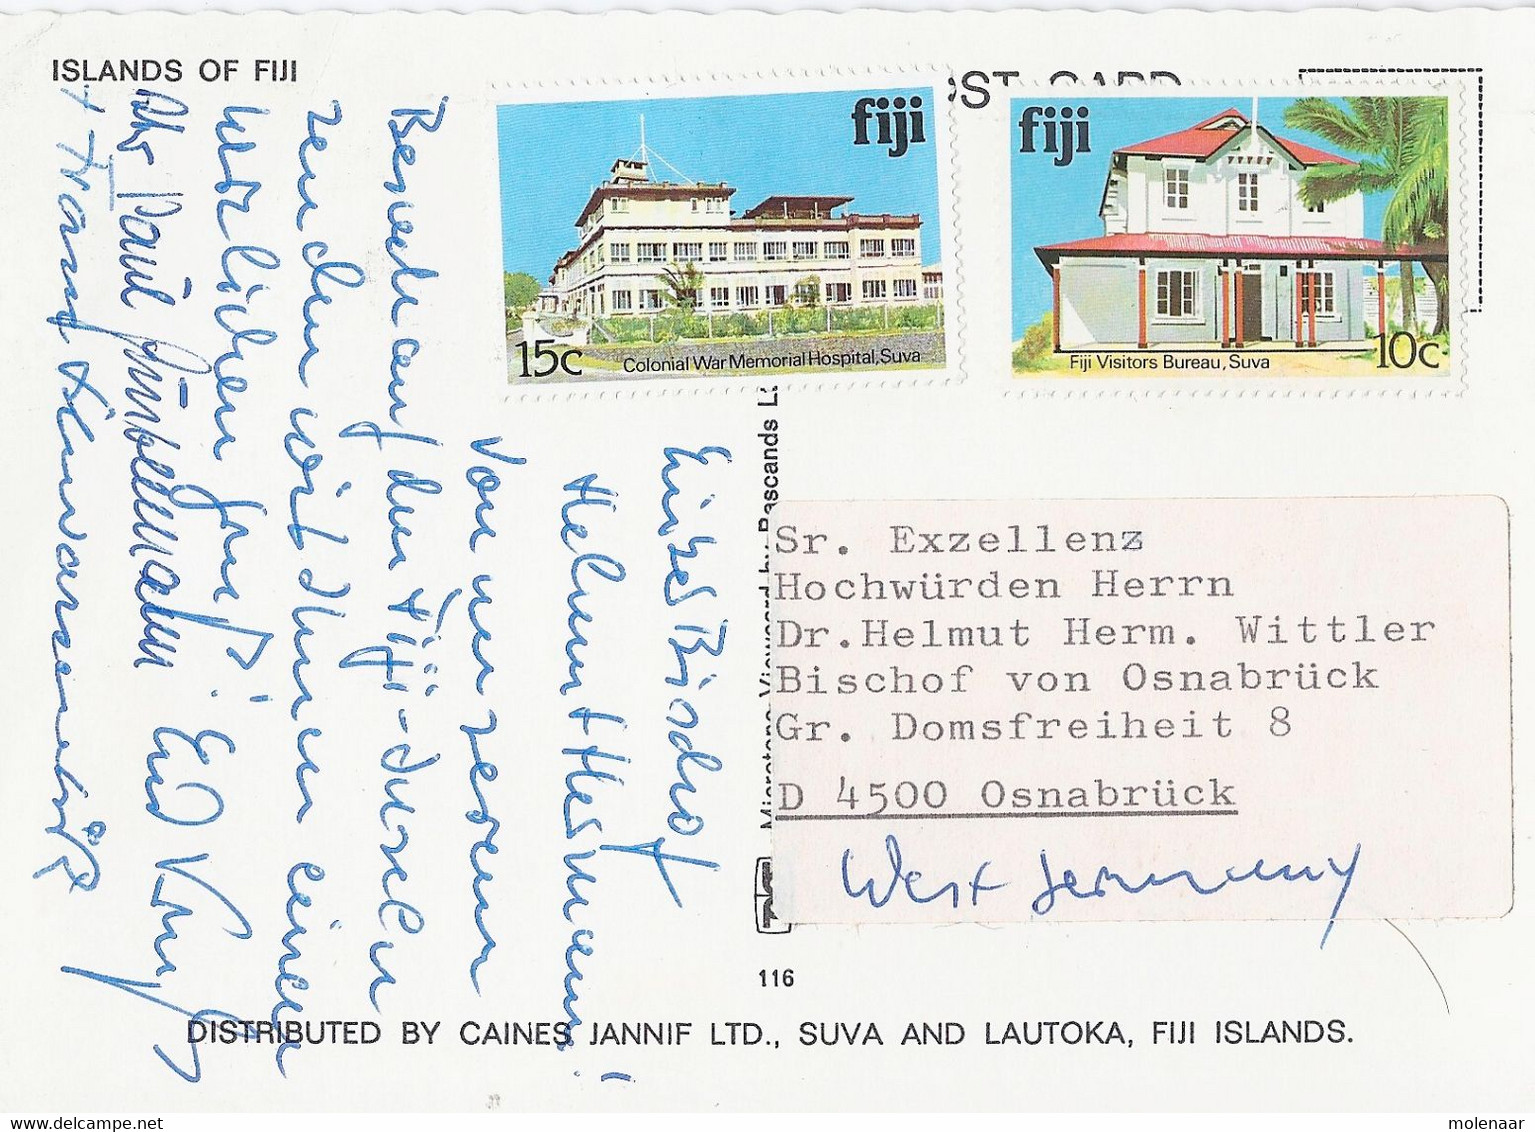 ISLANDS OF FIJI
POST CARD
fiji
15c
Colonial War Memorial Hospital, Suva
fiji
Fiji Visitors Bureau, Suva
10c
Lieber Bischof
Helmut Hermann!
Von unserem
Besuch auf den Fiji-Inseln
senden wir Ihnen einen
herzlichen Gruß!
Ihr Paul
+ Franz
by Pascands
Sr. Exzellenz
Hochwürden Herrn
Dr. Helmut Herm. Wittler
Bischof von Osnabrück
Gr. Domsfreiheit 8
D 4500 Osnabrück
West Germany
116
DISTRIBUTED BY CAINES JANNIF LTD., SUVA AND LAUTOKA, FIJI ISLANDS.
molenaar